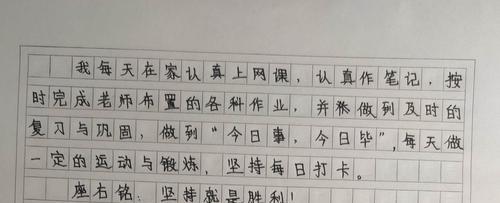 我每天在家认真上网课，认真作笔记，按
时完成老师布置的各科作业，并做到及时的
复习与巩固，做到“今日事，今日毕”，每天做
一定的运动与锻炼，坚持每日打卡。
座右铭：坚持就是胜利！